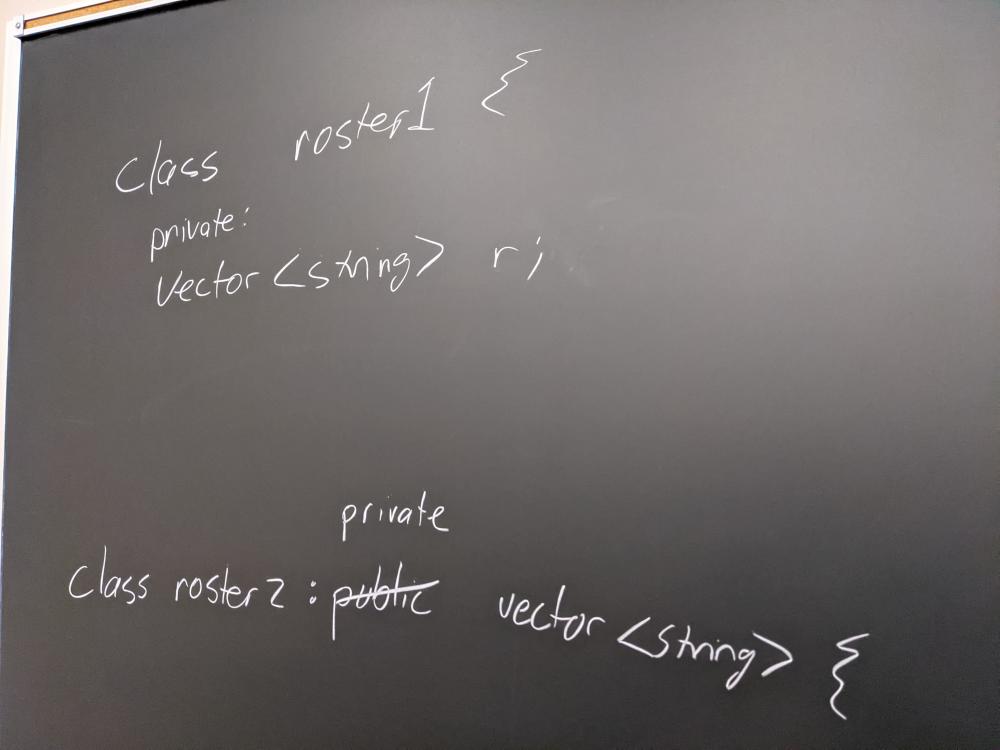 class roster1 {
private:
vector <string> r;
private
class roster2 : public vector <string> {